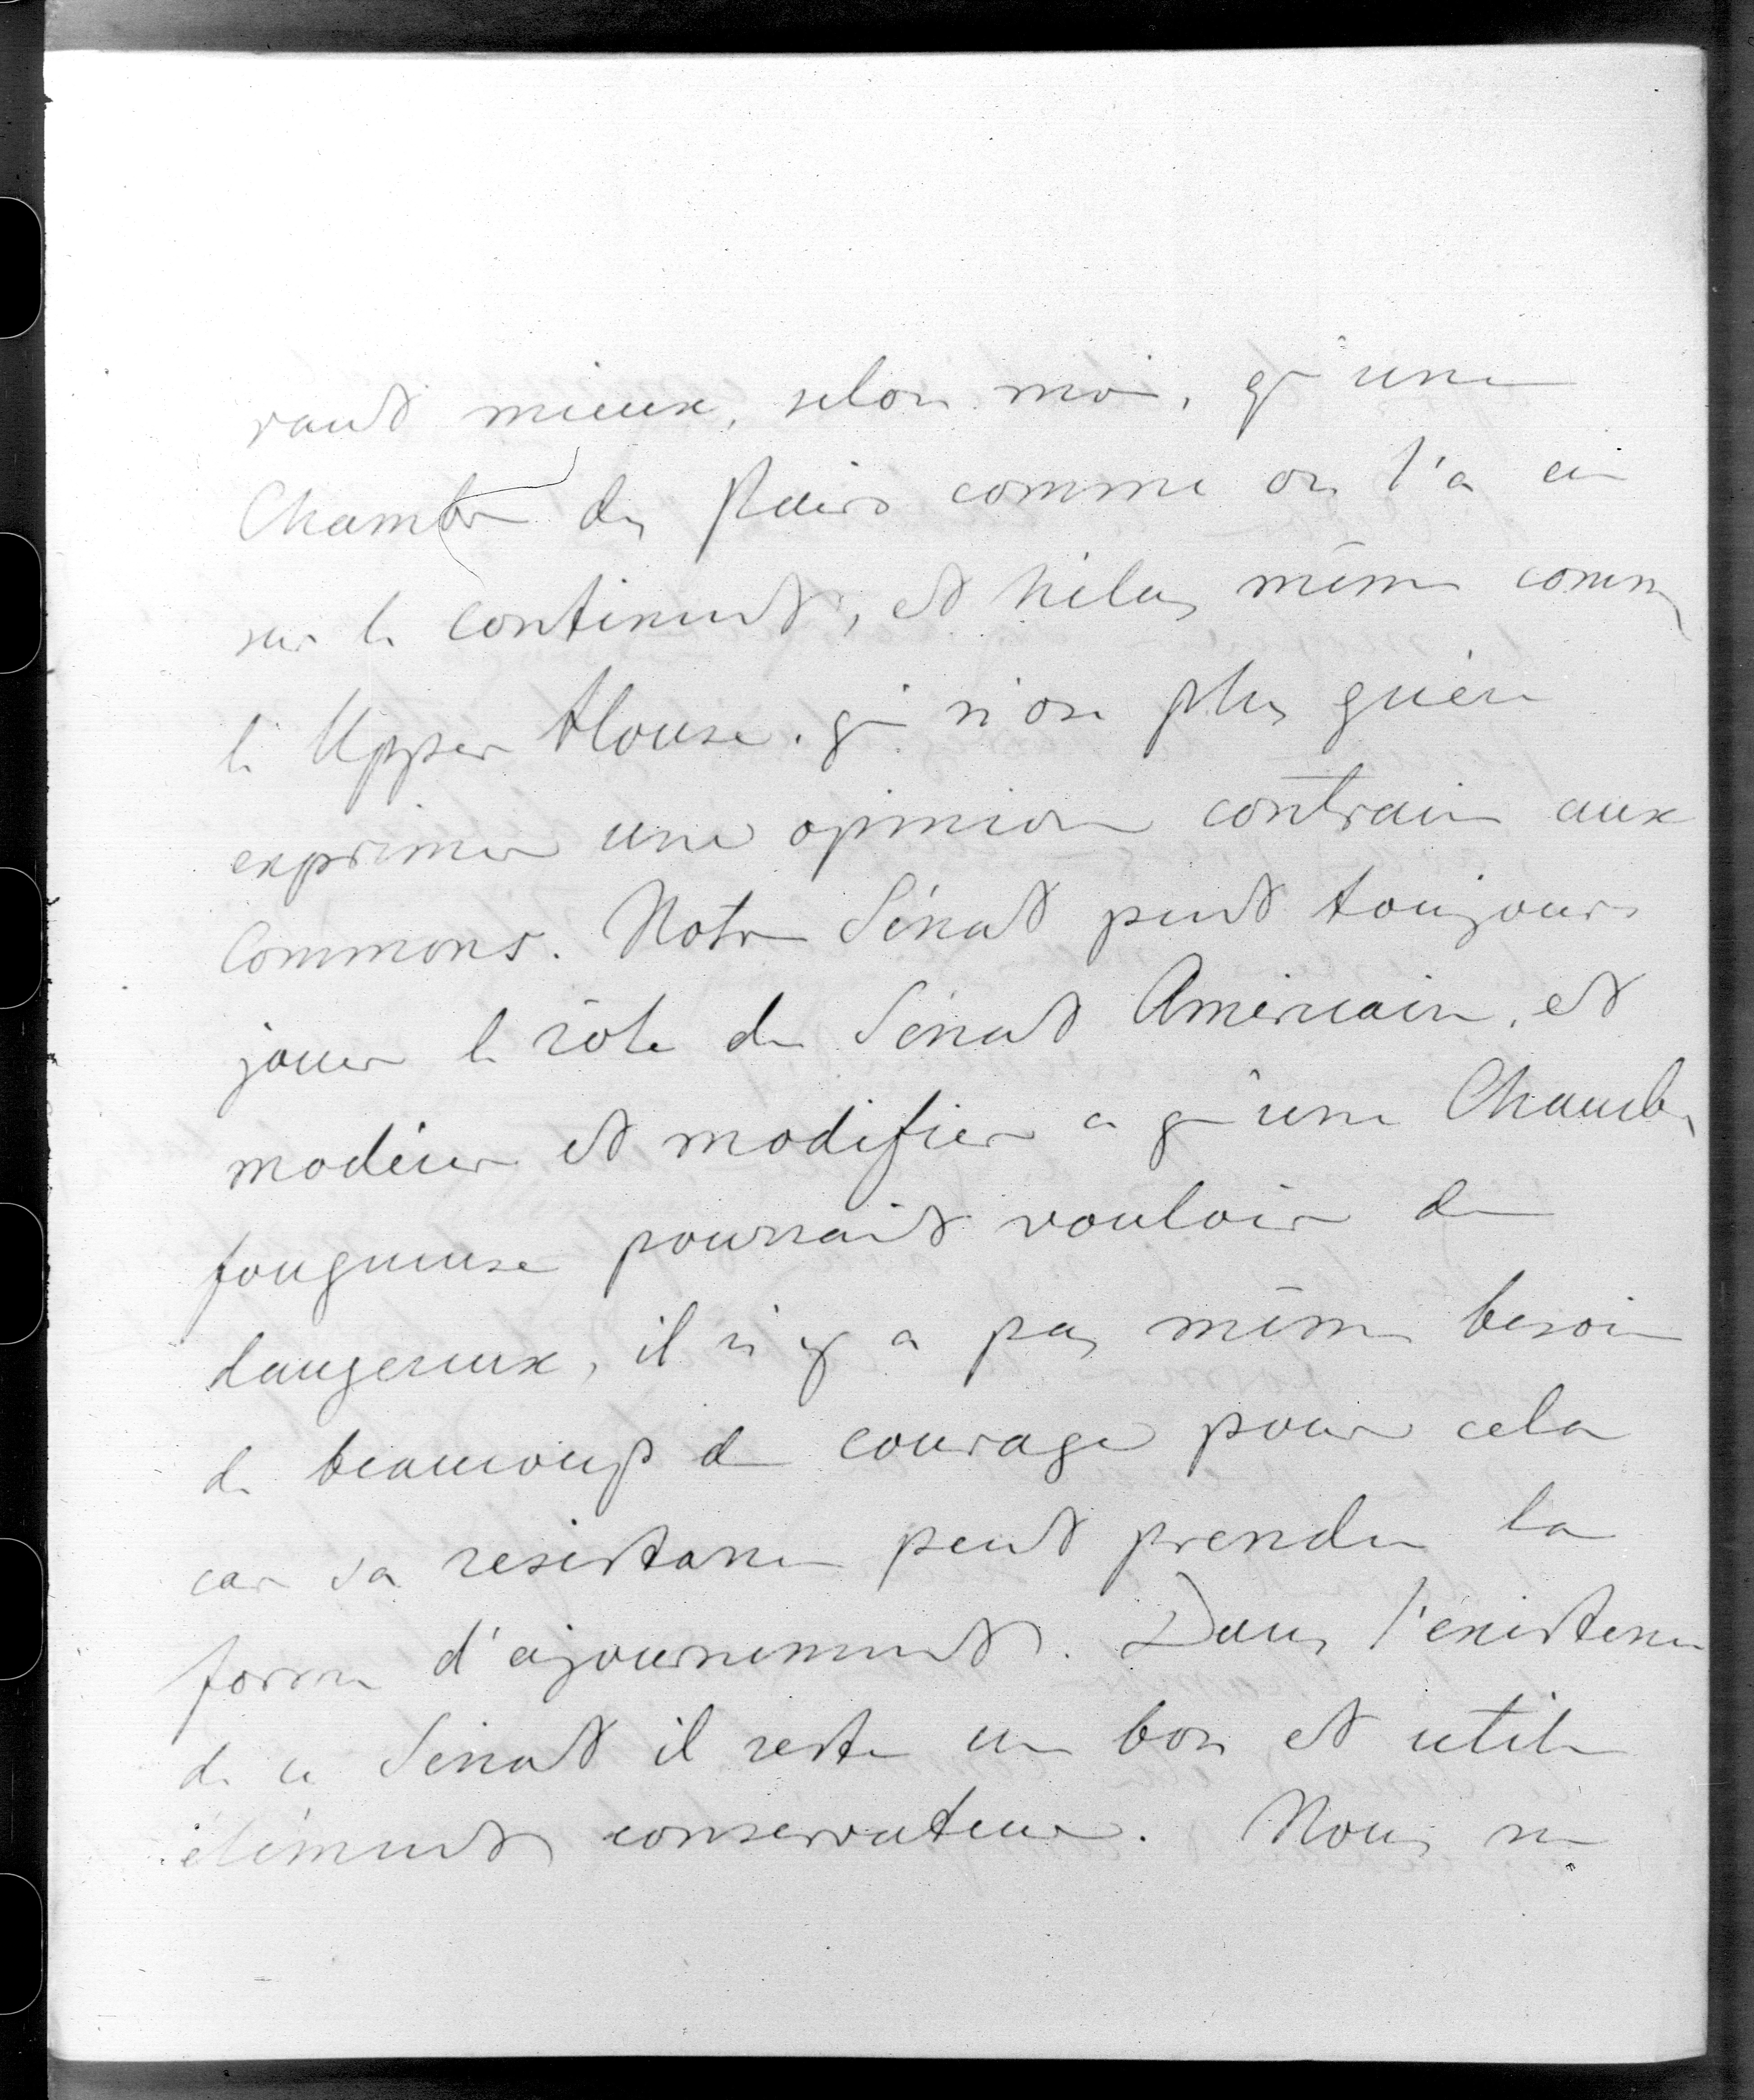 vaut mieux, selon moi, qu'une
Chambre des Pairs comme on l'a eu
sur le continent, et hélas même comme
le Upper House. qui n'ose plus guère
exprimer une opinion contraire aux
Commons. Notre Sénat peut toujours
jouer le rôle du Sénat Américain, et
modérer et modifier ce qu'une Chambre
fougueuse pourrait vouloir de
dangereux, il n'y a pas même besoin
de beaucoup de courage pour cela
car sa resistance peut prendre la
forme d'ajournement. Dans l'existence
de ce Sénat il reste un bon et utile
élément conservateur. Nous ne